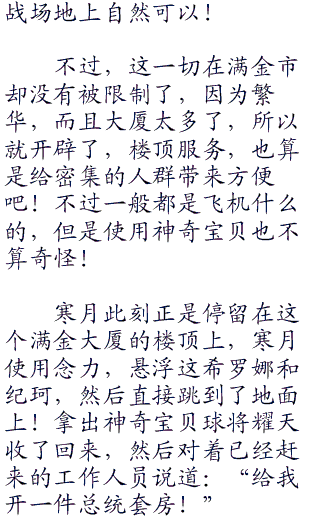 战场地上自然可以！
不过，这一切在满金市
却没有被限制了，因为繁
华，而且大厦太多了，所以
就开辟了，楼顶服务，也算
是给密集的人群带来方便
吧！不过一般都是飞机什么
的，但是使用神奇宝贝也不
算奇怪！
寒月此刻正是停留在这
个满金大厦的楼顶上，寒月
使用念力，悬浮这希罗娜和
纪珂，然后直接跳到了地面
上！拿出神奇宝贝球将耀天
收了回来，然后对着已经赶
来的工作人员说道：“给我
开一件总统套房！”